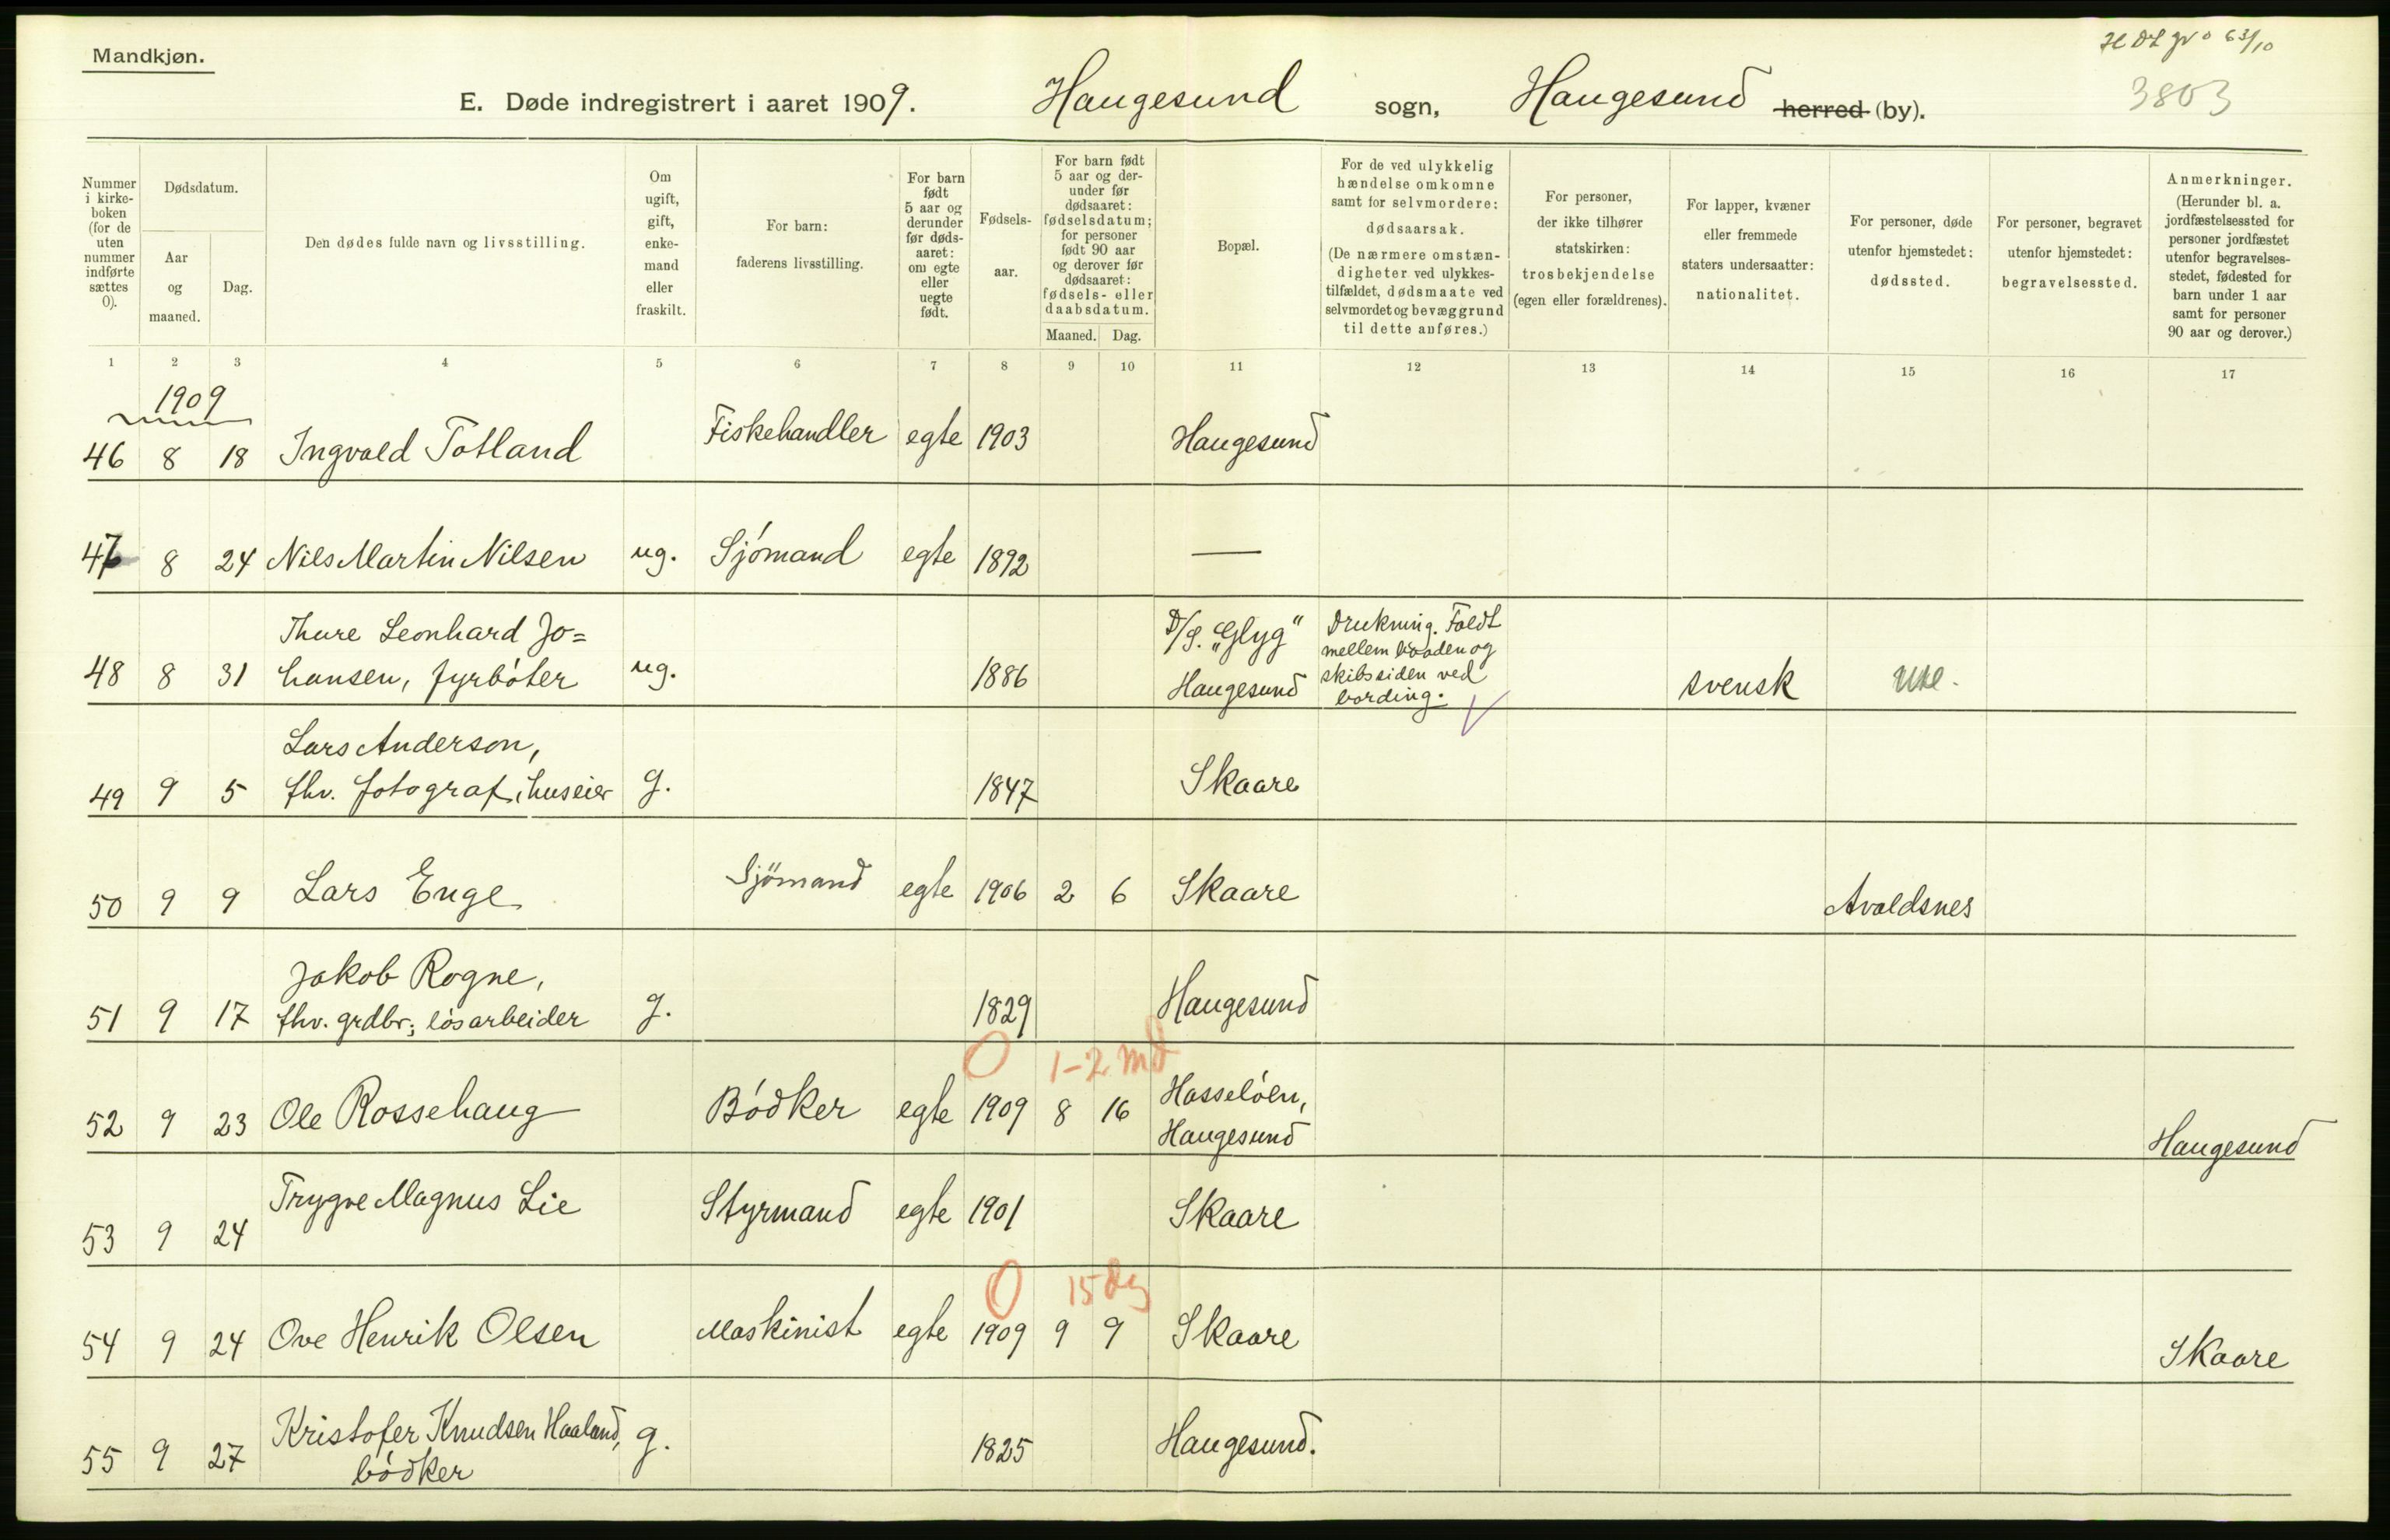 Mandkjøn.
3803
E. Døde indregistrert i aaret 1909. Haugesund sogn, Haugesund herred (by).
Nummer i kirke-boken (for de uten nummer indførte sættes 0).
Dødsdatum.
Aar og maaned.
Dag.
Den dødes fulde navn og livsstilling.
Om ugift, gift, enke-mand eller fraskilt.
For barn: faderens livsstilling.
For barn født 5 aar og derunder før døds-aaret: om egte eller uegte født.
Fødsels-aar.
For barn født 5 aar og der-under før dødsaaret: fødselsdatum; for personer født 90 aar og derover før dødsaaret: fødsels- eller daabsdatum.
Maaned. Dag.
Bopæl.
For de ved ulykkelig hændelse omkomne samt for selvmordere: dødsaarsak. (De nærmere omstæn-digheter ved ulykkes-tilfældet, dødsmaate ved selvmordet og bevæggrund til dette anføres.)
For personer, der ikke tilhører statskirken: trosbekjendelse (egen eller forældrenes).
For lapper, kvæner eller fremmede staters undersaatter: nationalitet.
For personer, døde utenfor hjemstedet: dødssted.
For personer, begravet utenfor hjemstedet: begravelsessted.
Anmerkninger. (Herunder bl. a. jordfæstelsessted for personer jordfæstet utenfor begravelses-stedet, fødested for barn under 1 aar samt for personer 90 aar og derover.)
1 2 3 4 5 6 7 8 9 10 11 12 13 14 15 16 17
1909
46 8 18 Ingvald Totland Fiskehandler egte 1903 Haugesund
47 8 24 Nils Martin Nilsen ug. Sjómand egte 1892 —
48 8 31 Thure Leonhard Jo=
hansen, fyrbóter ug. 1886 D/S. „Glyg" Haugesund Drukning. Faldt mellem baaden og skibssiden ved bording. svensk
49 9 5 Lars Anderson,
fhv. fotograf, huseier g. 1847 Skaare
50 9 9 Lars Enge Sjömand egte 1906 2 6 Skaare Avaldsnes
51 9 17 Jakob Rogne,
fhv. grdbr; lósarbeider g. 1829 Haugesund
0 1-2 md
52 9 23 Ole Rossehaug Bódker egte 1909 8 16 Hasselóen, Haugesund Haugesund
53 9 24 Trygve Magnus Lie Styrmand egte 1901 Skaare
0 15 dg
54 9 24 Ove Henrik Olsen Maskinist egte 1909 9 9 Skaare Skaare
55 9 27 Kristofer Knudsen Haaland,
bódker g. 1825 Haugesund.